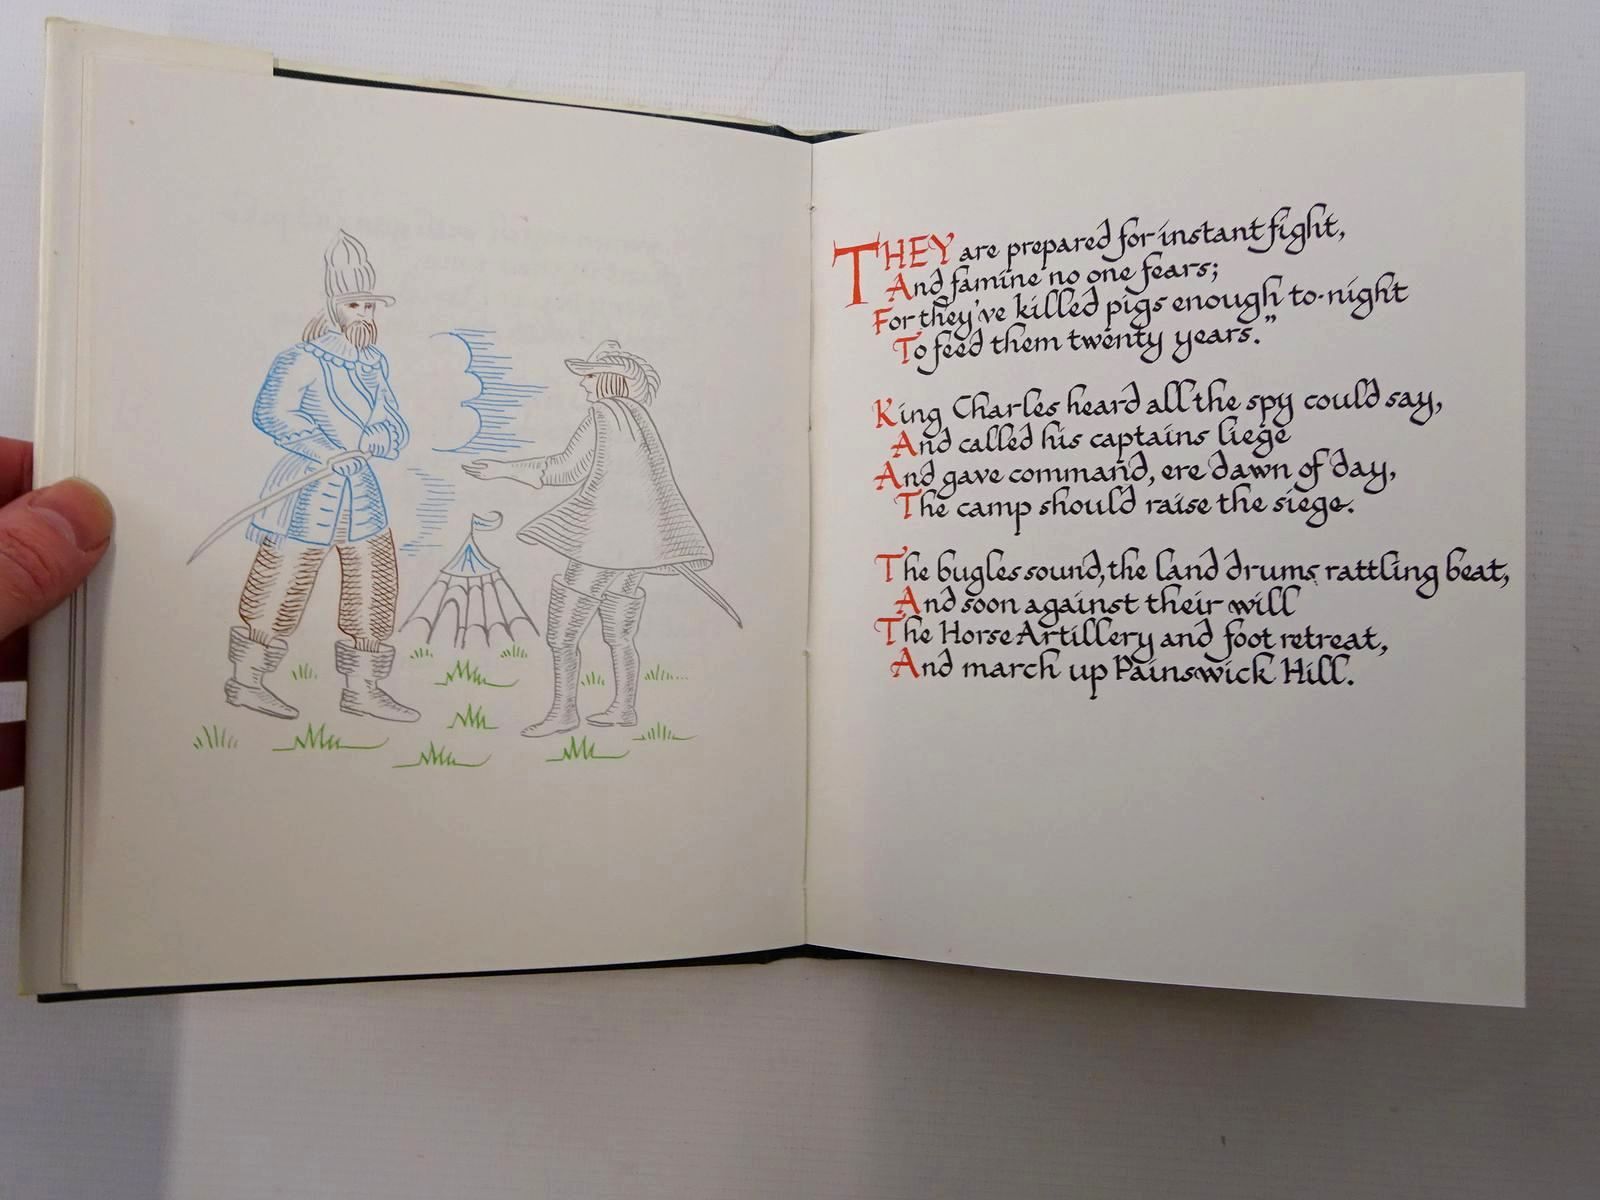 THEY are prepared for instant fight,
And famine no one fears;
For they've killed pigs enough to-night
To feed them twenty years."
King Charles heard all the spy could say,
And called his captains liege
And gave command, ere dawn of day,
The camp should raise the siege.
The bugles sound, the land drums rattling beat,
And soon against their will
The Horse Artillery and foot retreat,
And march up Painswick Hill.